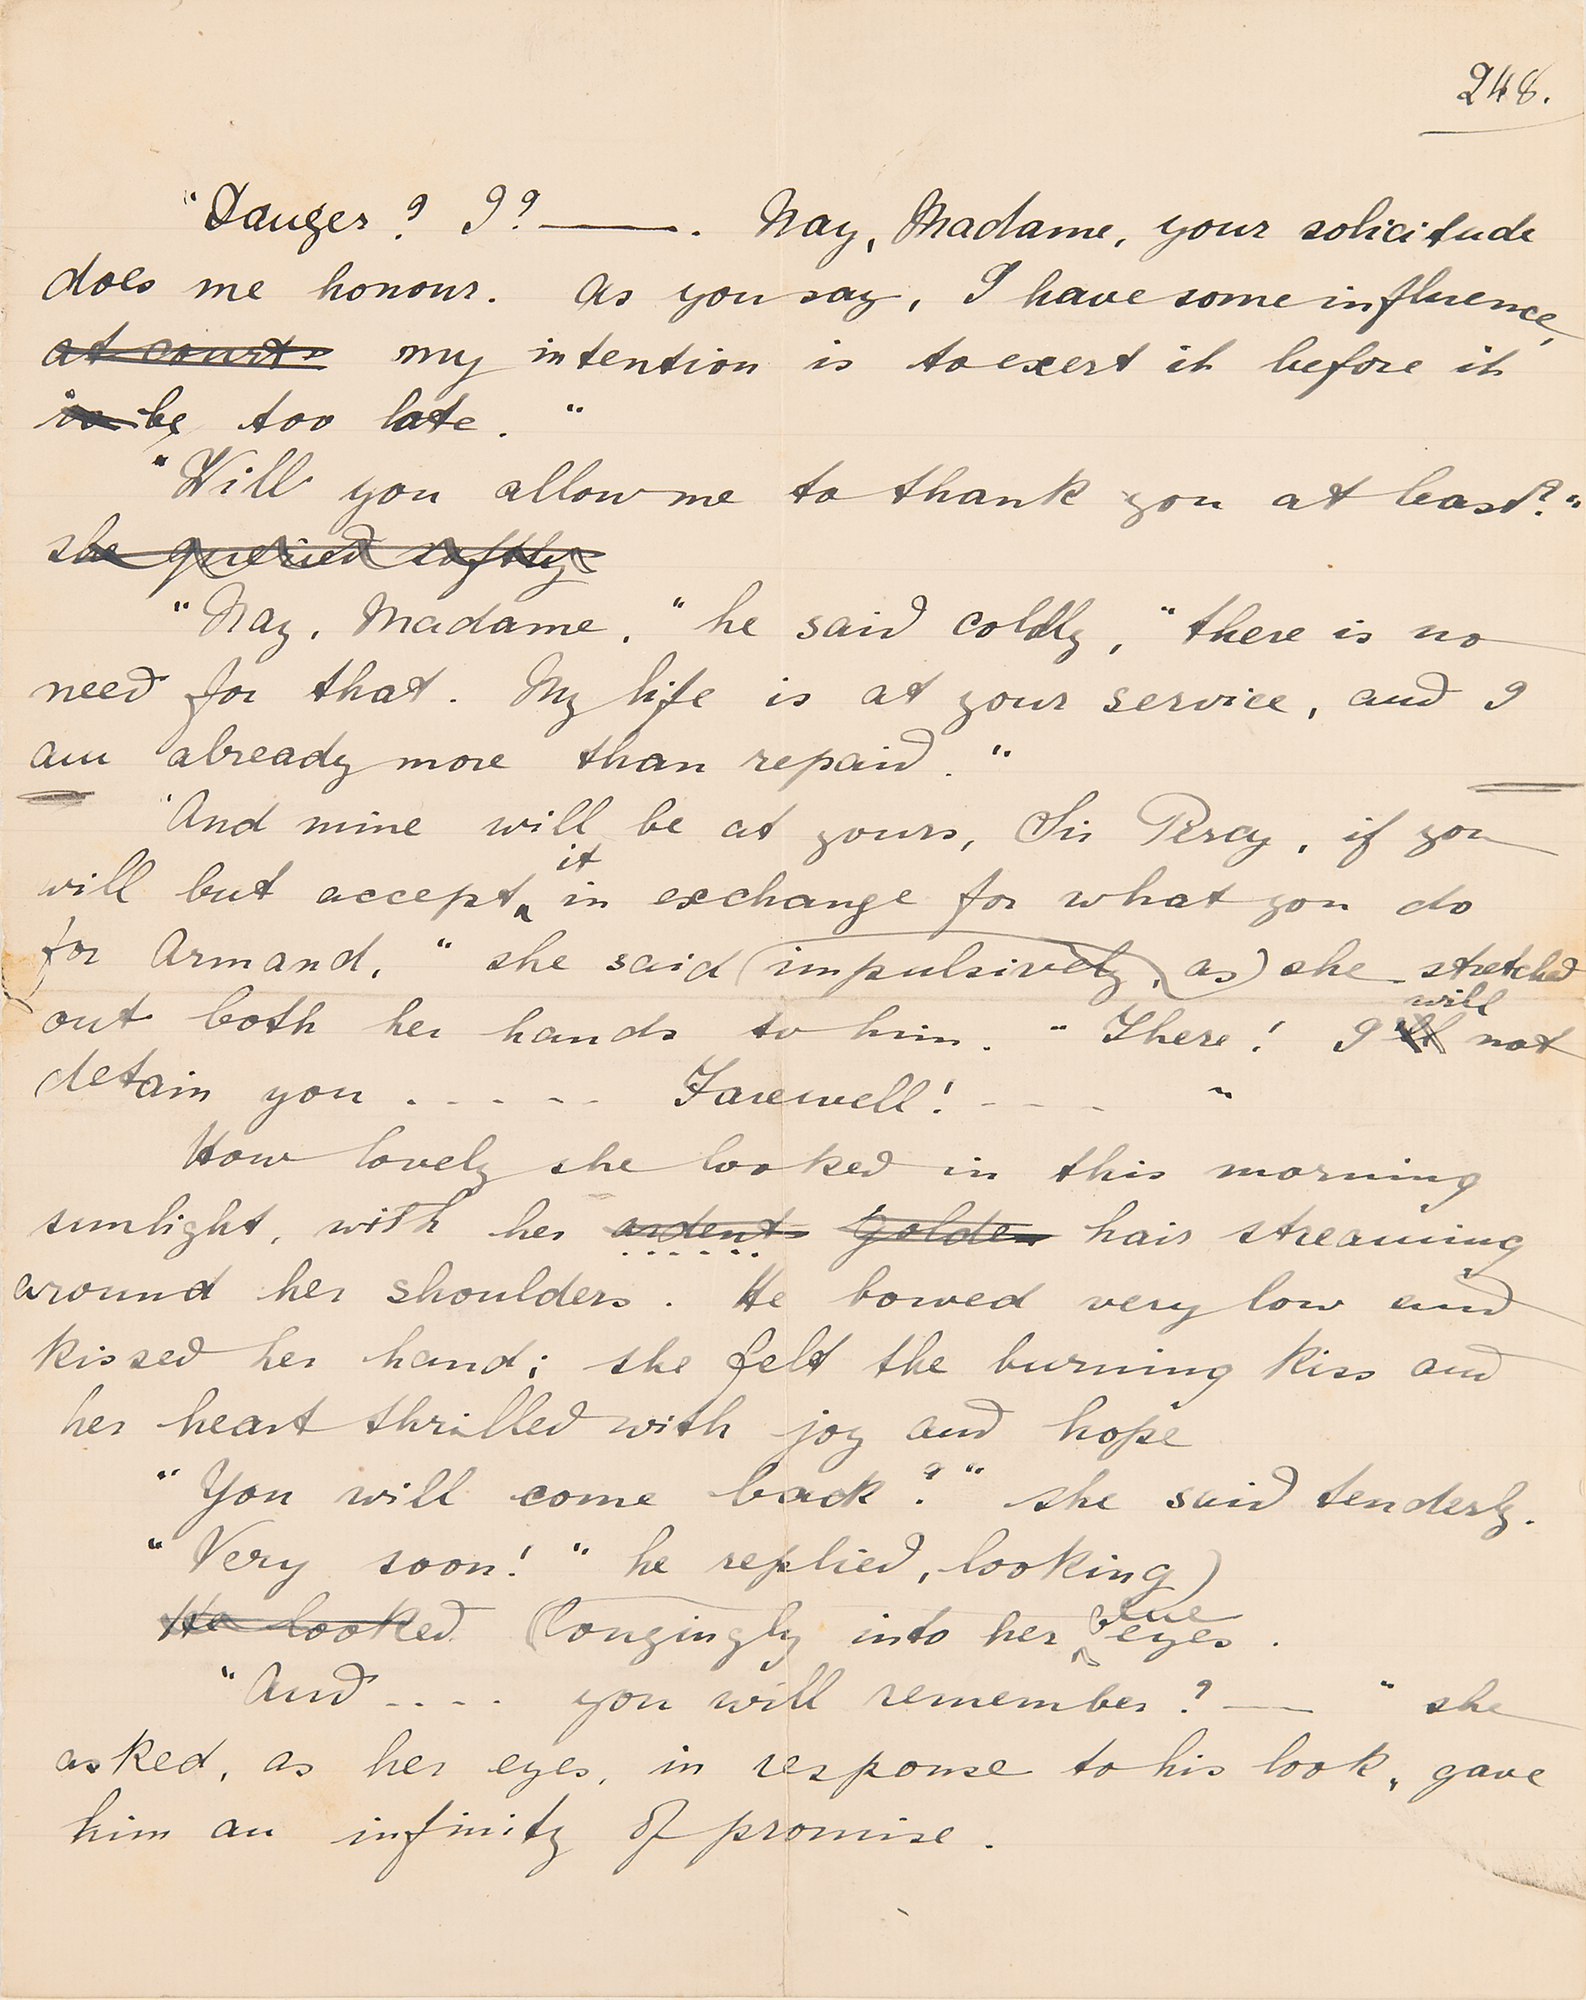 248.
"Danger? I? ——. Nay, Madame, your solicitude
does me honour. As you say, I have some influence,
at court my intention is to exert it before it
is be too late."
"Will you allow me to thank you at least?"
she queried softly
"Nay, Madame," he said coldly, "there is no
need for that. My life is at your service, and I
am already more than repaid."
"And mine will be at yours, Sir Percy, if you
will but accept it in exchange for what you do
for Armand," she said (impulsively, as) she stretched
out both her hands to him. "There! I will not
detain you ..... Farewell! .... "
How lovely she looked in this morning
sunlight, with her ardent golden hair streaming
around her shoulders. He bowed very low and
kissed her hand; she felt the burning kiss and
her heart thrilled with joy and hope
"You will come back?" she said tenderly.
"Very soon!" he replied, looking)
He looked (longingly into her blue eyes.
"And .... you will remember? —— " she
asked, as her eyes, in response to his look, gave
him an infinity of promise.